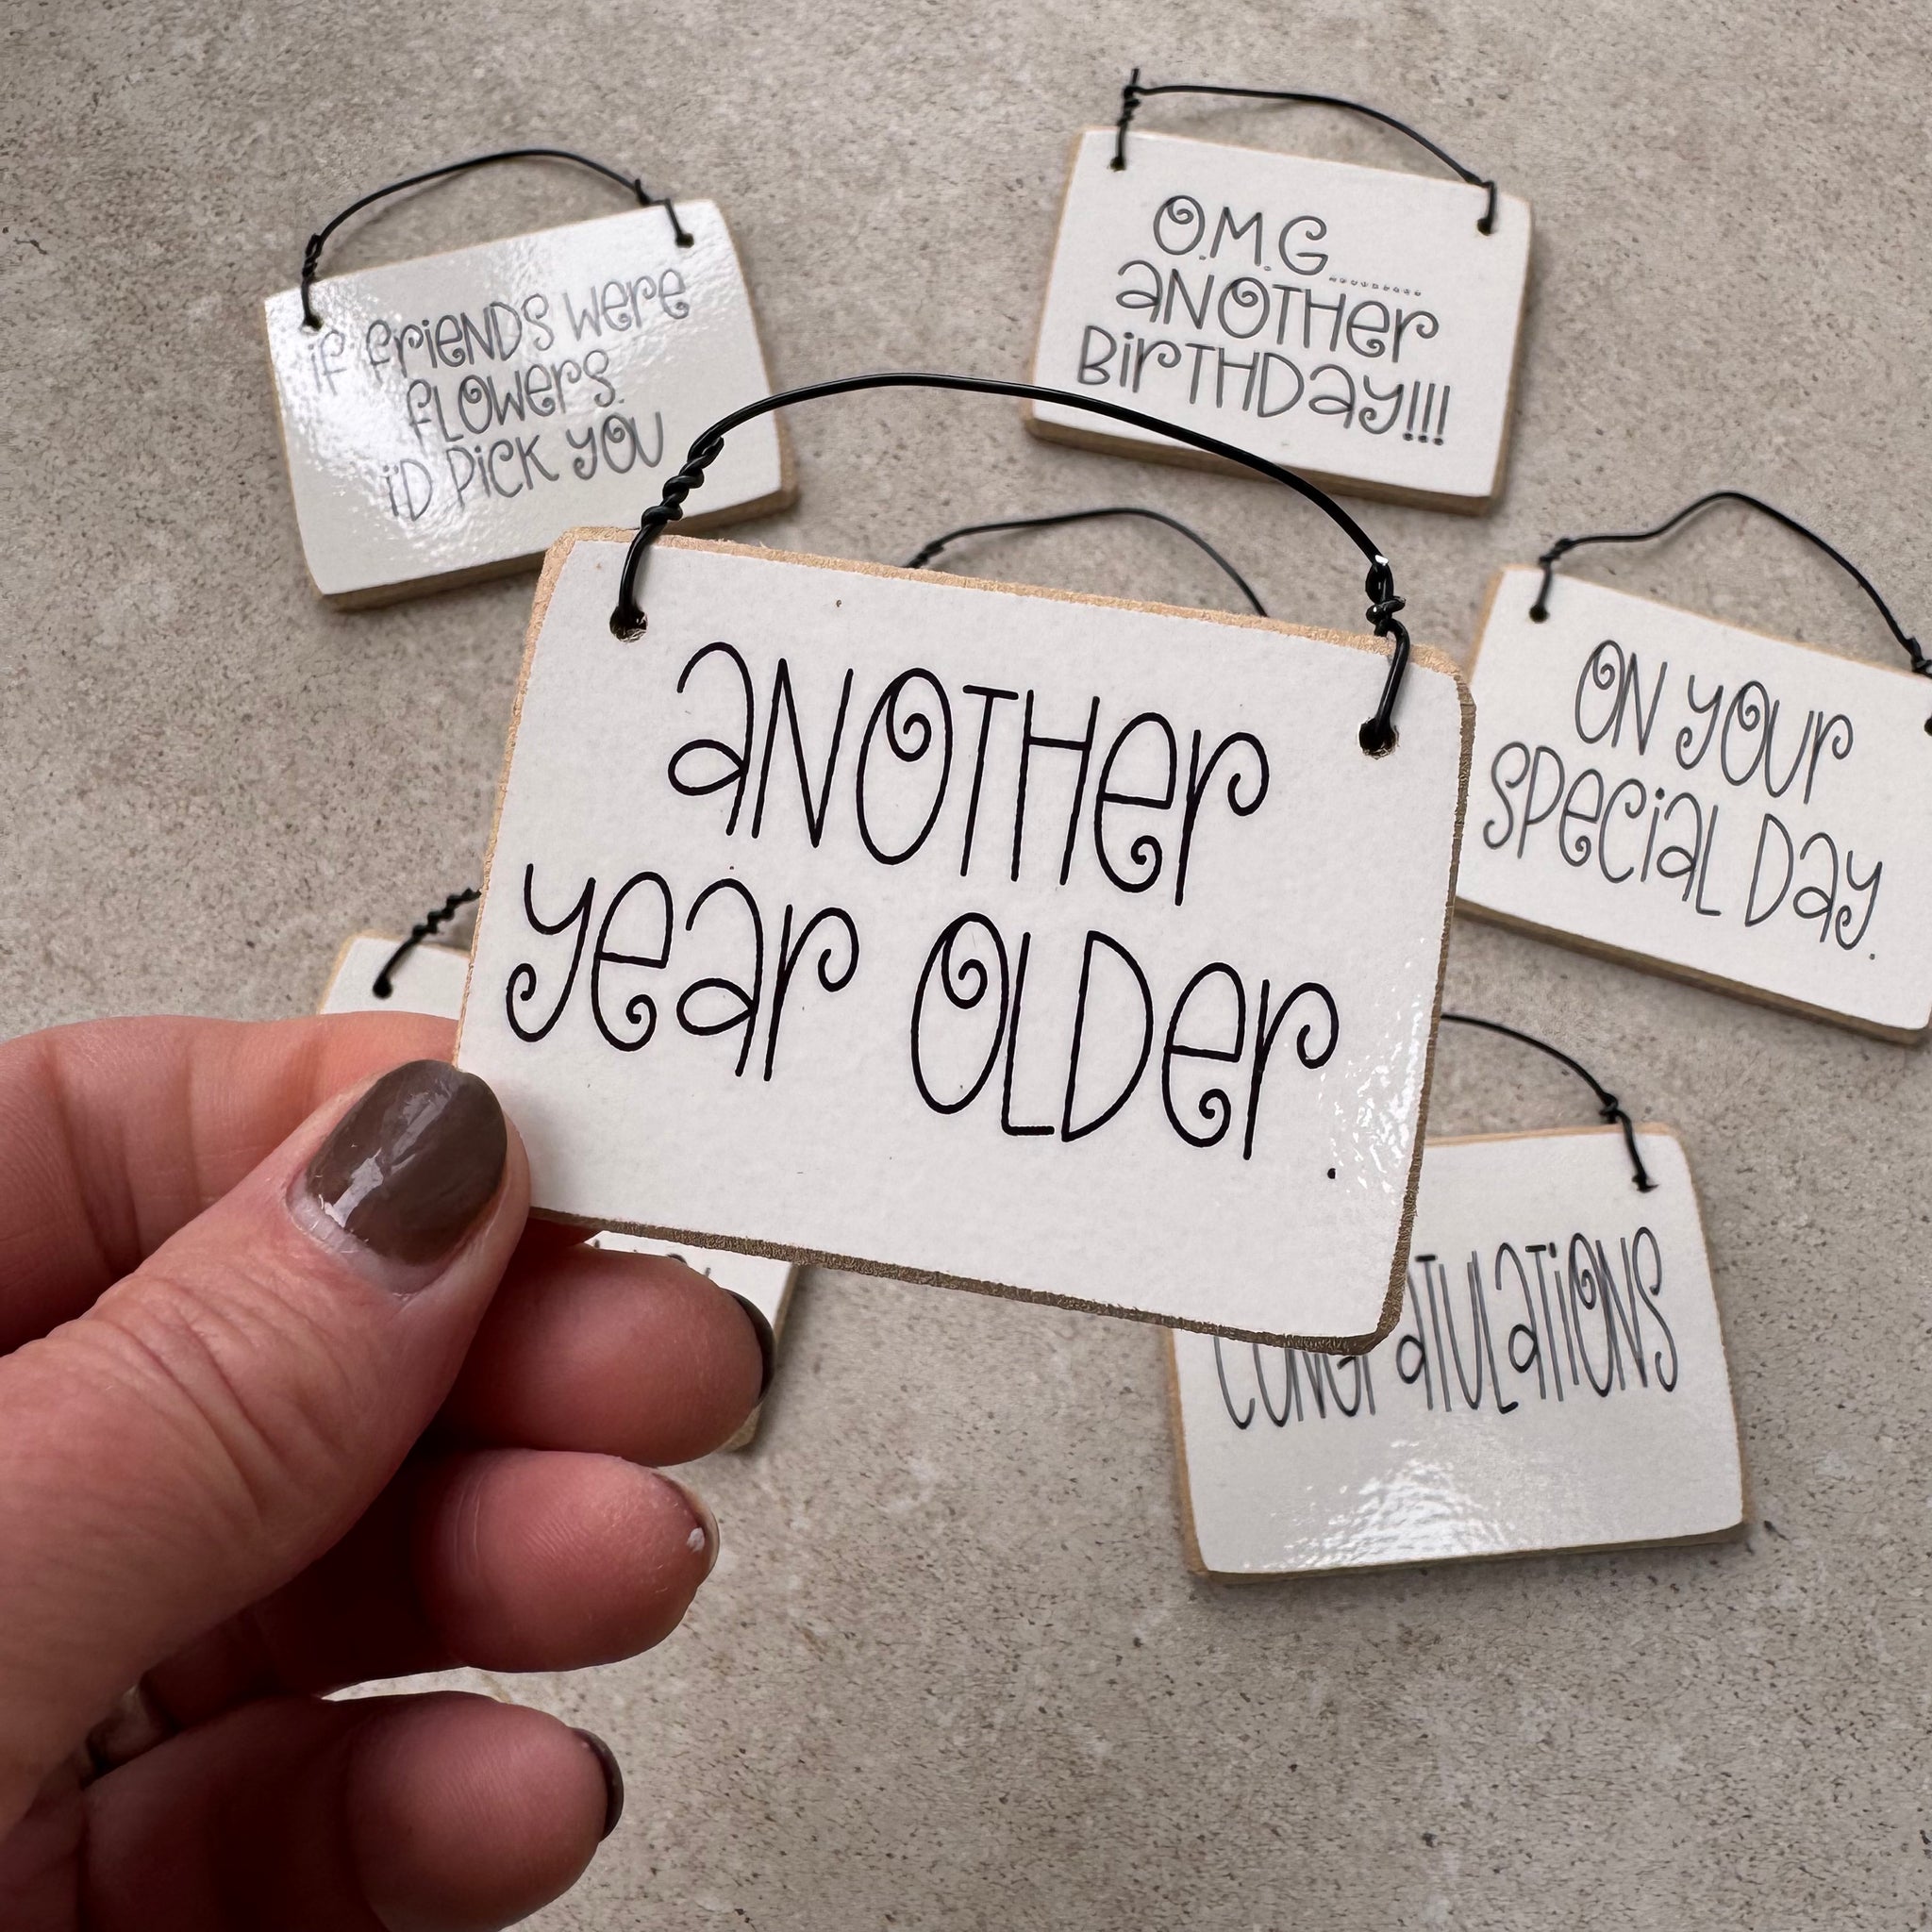 if friends were
flowers.
i'd pick you
O.M.G..........
another
Birthday!!!
another
year older.
on your
special day.
congratulations